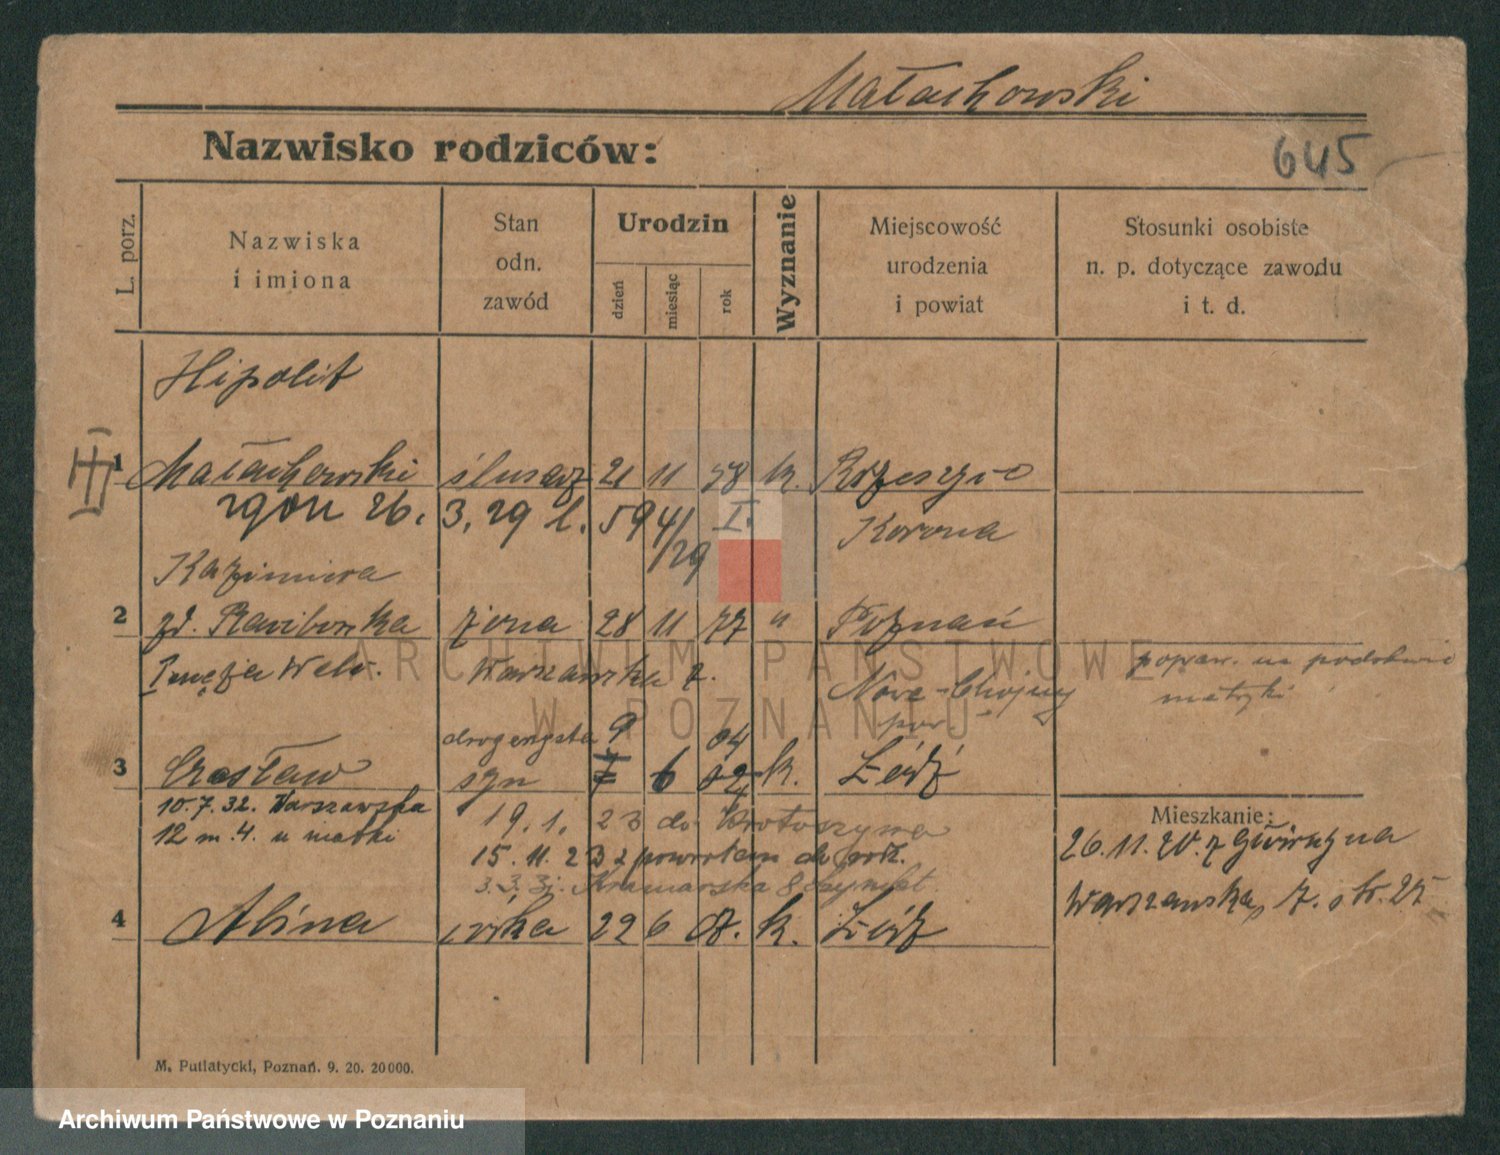 Małachowski
Nazwisko rodziców:
645
L. porz.
Nazwiska
i imiona
Stan
odn.
zawód
Urodzin
dzień
miesiąc
rok
Wyznanie
Miejscowość
urodzenia
i powiat
Stosunki osobiste
n. p. dotyczące zawodu
i t. d.
Hipolit
III
1 Małachowski ślusarz 21 11 78 k.
zgon 26. 3. 29 l. 594/29 I. Korona
Kazimiera
2 zd. żona 28 11 77 " Poznań
Warszawska 7.
popraw. na podstawie
matryki
Nowo-Chojny
pow.
drogerzysta 9 04
3 Czesław syn 7 6 02 k. Łódź
10.7.32. Warszawska
12 m. 4. u matki
19.1. 23 do Krotoszyna
15.11.23 z powrotem do rodz.
3.3.31. Kramarska 8
4 Alina córka 22 6 07. k. Łódź
Mieszkanie:
26.11.20. z Gwirzyna
Warszawska 7. str. 25
M. Putiatycki, Poznań. 9. 20. 20000.
ARCHIWUM PAŃSTWOWE
W POZNANIU
Archiwum Państwowe w Poznaniu